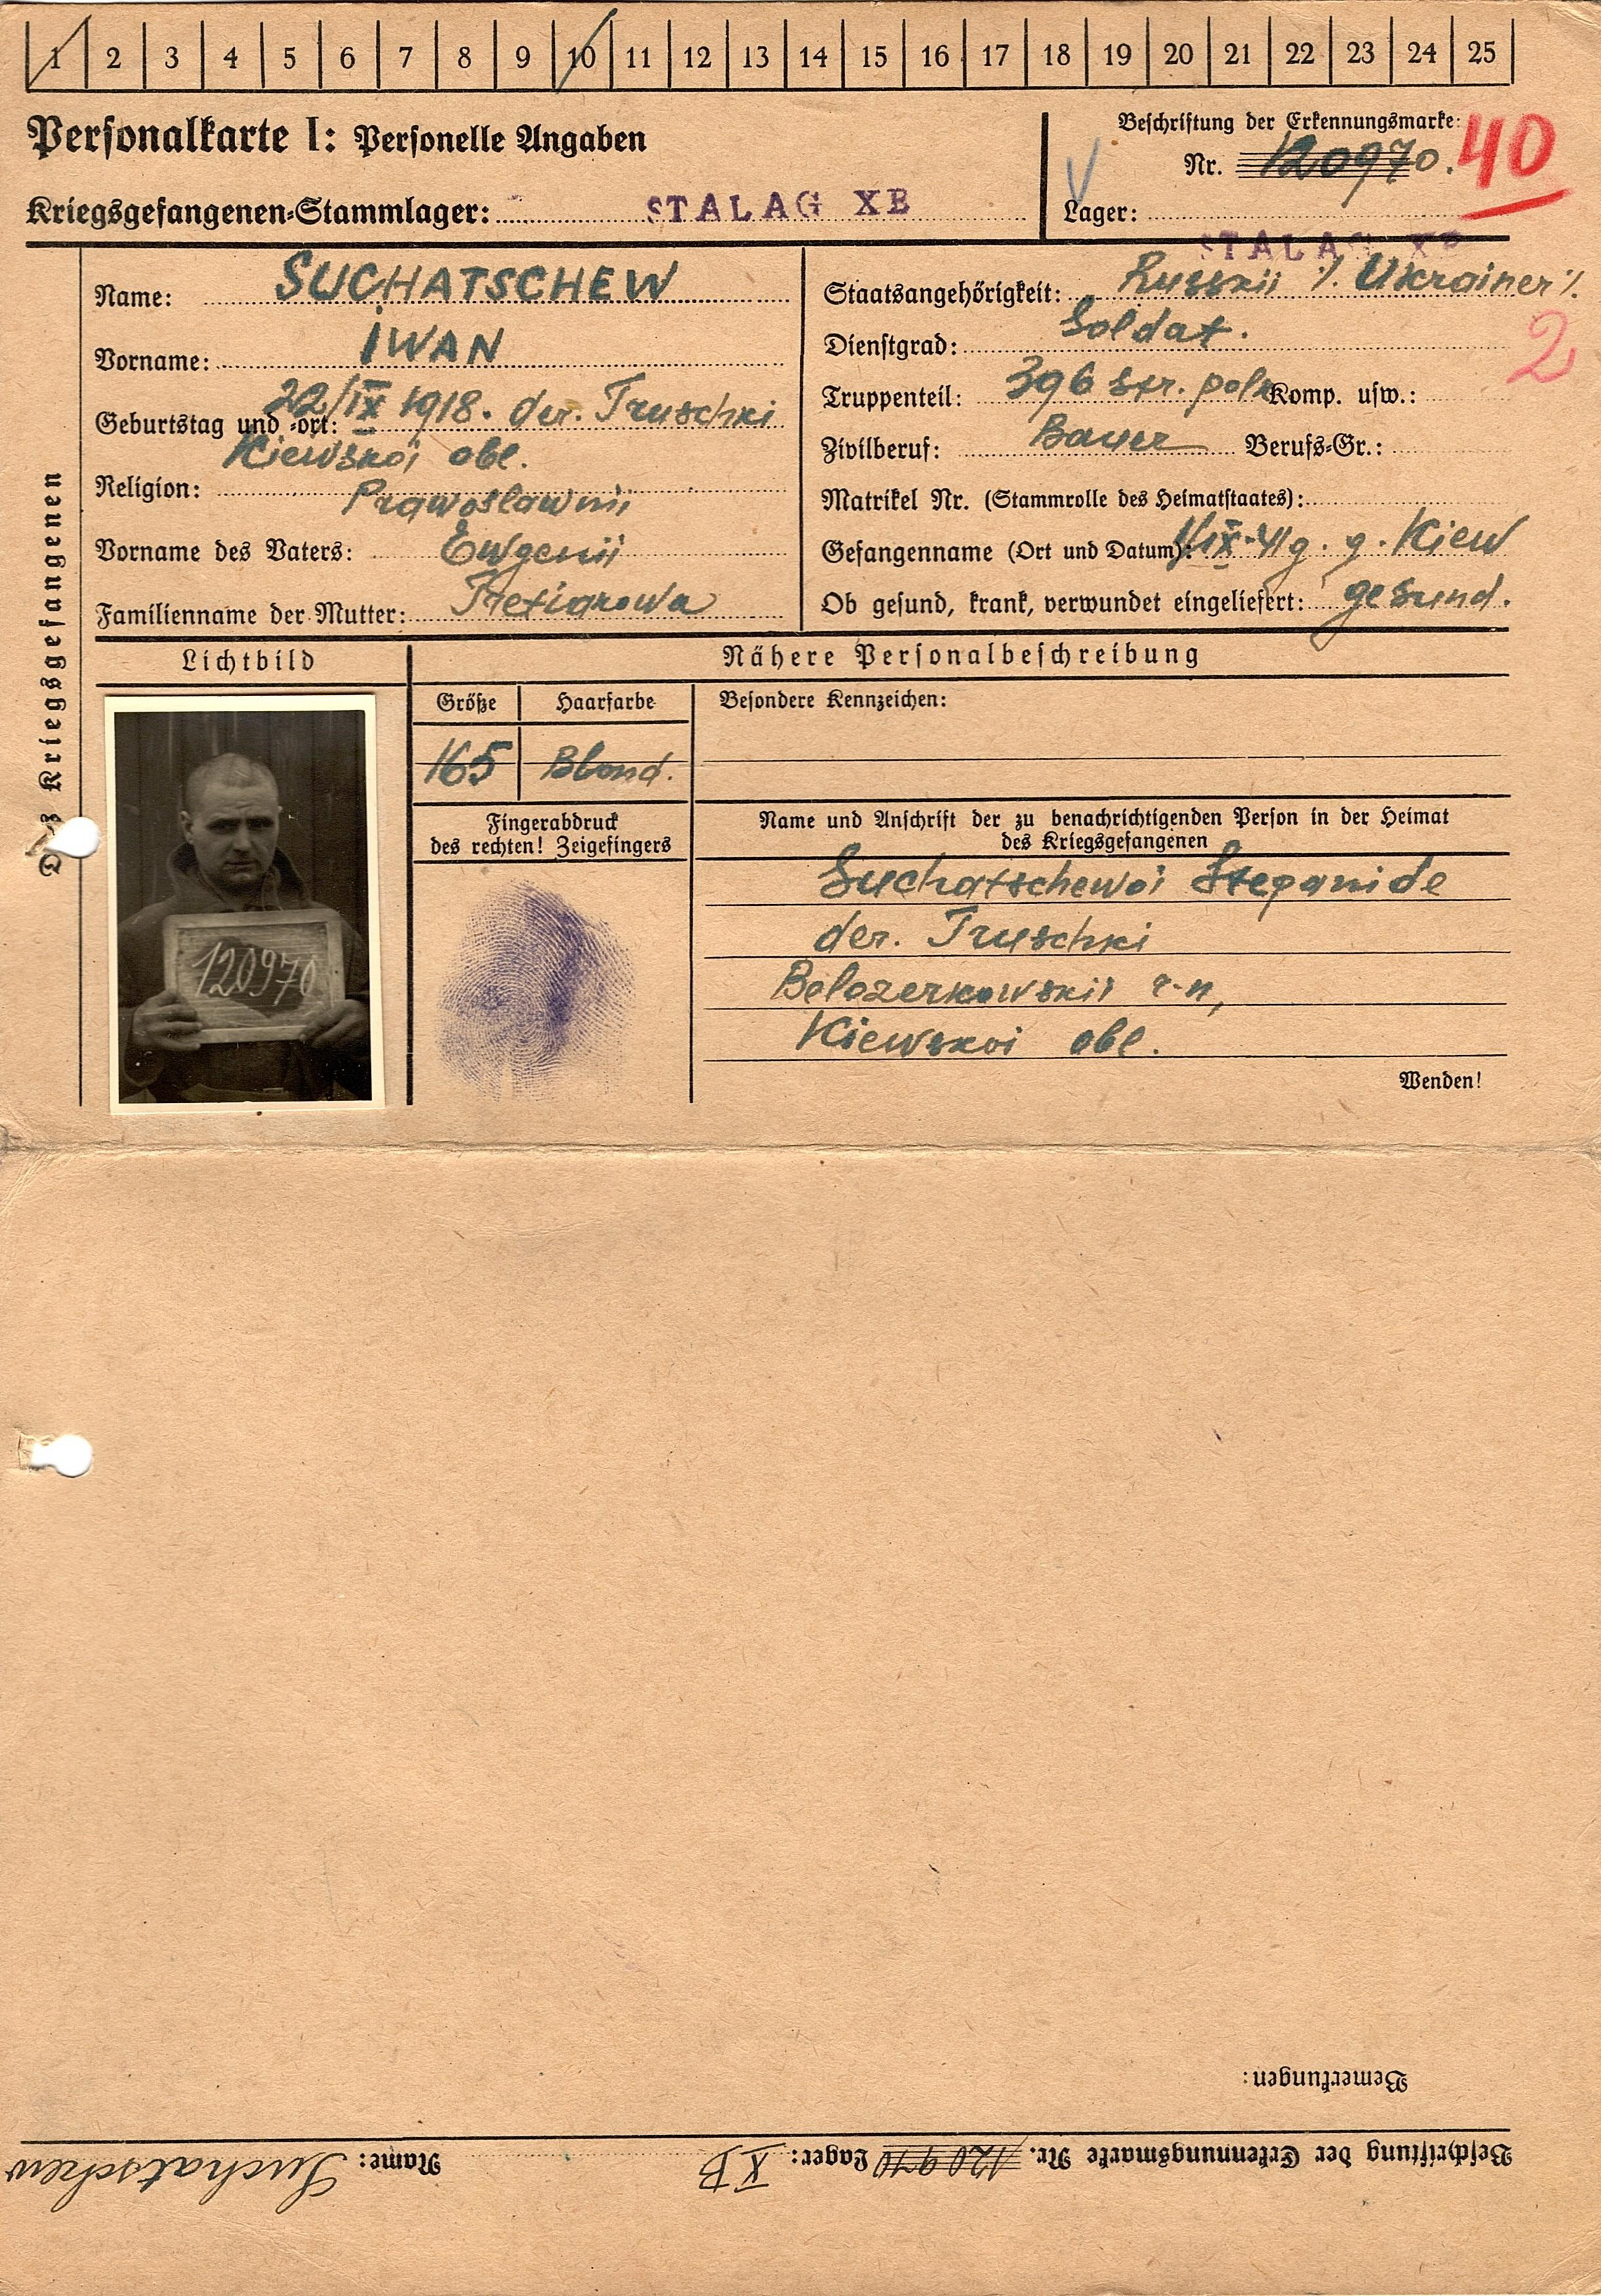 1 2 3 4 5 6 7 8 9 10 11 12 13 14 15 16 17 18 19 20 21 22 23 24 25
Personalkarte I: Personelle Angaben
Kriegsgefangenen-Stammlager: STALAG XB
Beschriftung der Erkennungsmarke:
Nr. 120970. 40
Lager: STALAG XB
Des Kriegsgefangenen
Name: SUCHATSCHEW
Vorname: IWAN
Geburtstag und -ort: 22/IX 1918. der. Truschki
Kiewskoi obl.
Religion: Prawoslawnii
Vorname des Vaters: Ewgenii
Familienname der Mutter: Tretiarowa
Staatsangehörigkeit: Russkii ./. Ukrainer ./.
2
Dienstgrad: Soldat.
Truppenteil: 396 str. polk Komp. usw.:
Zivilberuf: Bauer Berufs-Gr.:
Matrikel Nr. (Stammrolle des Heimatstaates):
Gefangenname (Ort und Datum): IX-41 g. g. Kiew
Ob gesund, krank, verwundet eingeliefert: gesund.
Lichtbild
Nähere Personalbeschreibung
Größe Haarfarbe Besondere Kennzeichen:
165 Blond.
Fingerabdruck
des rechten! Zeigefingers
Name und Anschrift der zu benachrichtigenden Person in der Heimat
des Kriegsgefangenen
Suchatschewoi Stepanide
der. Truschki
Belozerkowskii r-n,
Kiewskoi obl.
120970
Wenden!
Bemerkungen:
Beschriftung der Erkennungsmarke Nr. 120970 Lager: XB Name: Suchatschew